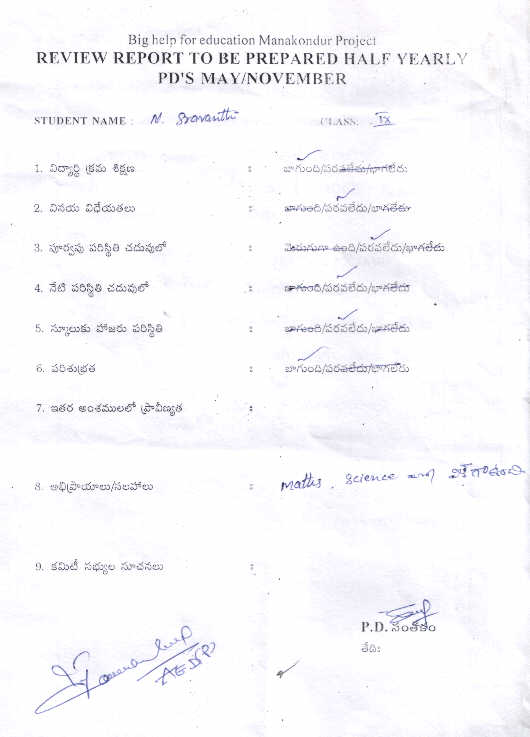 Big help for education Manakondur Project
REVIEW REPORT TO BE PREPARED HALF YEARLY
PD'S MAY/NOVEMBER
STUDENT NAME : N. Sravanthi CLASS: IX
1. విద్యార్థి క్రమ శిక్షణ : బాగుంది/పరవలేదు/బాగలేదు
2. వినయ విధేయతలు : బాగుంది/పరవలేదు/బాగలేదు
3. పూర్వపు పరిస్థితి చదువులో : మెరుగుగా ఉంది/పరవలేదు/బాగలేదు
4. నేటి పరిస్థితి చదువులో : బాగుంది/పరవలేదు/బాగలేదు
5. స్కూలుకు హాజరు పరిస్థితి : బాగుంది/పరవలేదు/బాగలేదు
6. పరిశుభ్రత : బాగుంది/పరవలేదు/బాగలేదు
7. ఇతర అంశములలో ప్రావీణ్యత :
8. అభిప్రాయాలు/సలహాలు : Maths, Science
9. కమిటీ సభ్యుల సూచనలు :
P.D. సంతకం
తేది: